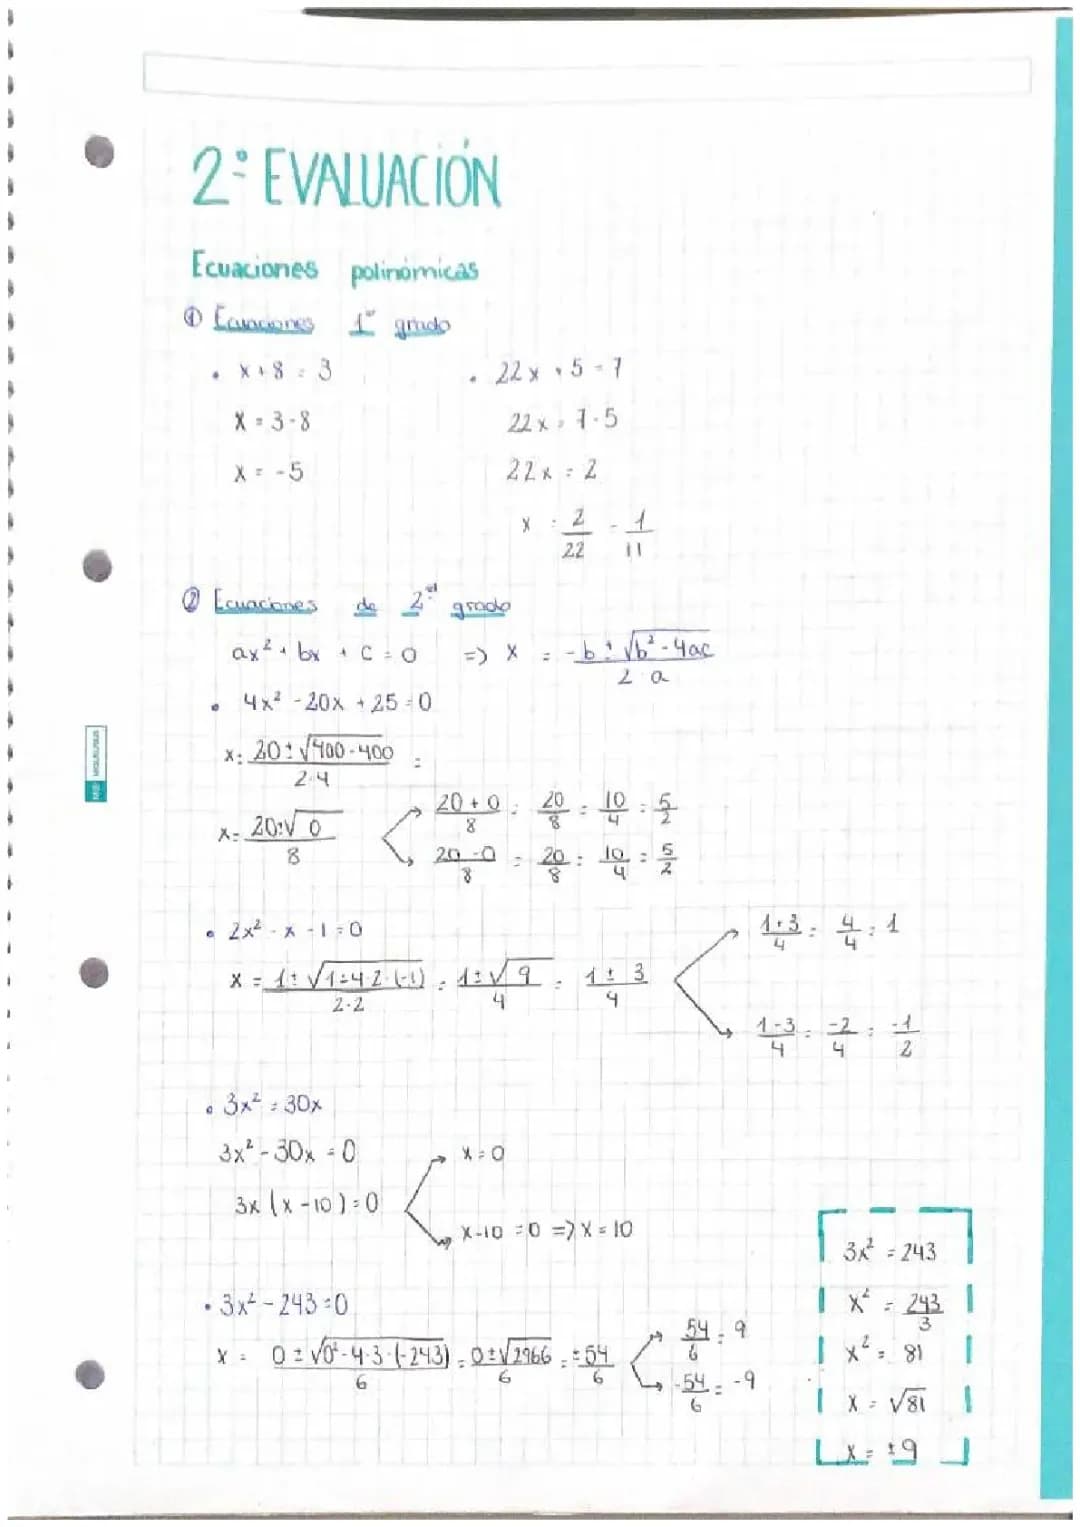 2ª EVALUACIÓN
Ecuaciones polinómicas
① Ecuaciones 1er grado
• x + 8 = 3
x = 3 - 8
x = -5
• 22x + 5 = 7
22x = 7 - 5
22x = 2
x = 2/22 = 1/11
② Ecuaciones de 2º grado
ax² + bx + c = 0 => x = (-b ± √(b² - 4ac))/(2 a)
• 4x² - 20x + 25 = 0
x = (20 ± √(400 - 400))/(2·4) =
x = (20 ± √0)/8
(20 + 0)/8 = 20/8 = 10/4 = 5/2
(20 - 0)/8 = 20/8 = 10/4 = 5/2
• 2x² - x - 1 = 0
x = (1 ± √(1 - 4·2·(-1)))/(2·2) = (1 ± √9)/4 = (1 ± 3)/4
(1 + 3)/4 = 4/4 = 1
(1 - 3)/4 = -2/4 = -1/2
• 3x² = 30x
3x² - 30x = 0
3x (x - 10) = 0
x = 0
x - 10 = 0 => x = 10
• 3x² - 243 = 0
x = (0 ± √(0² - 4·3·(-243)))/6 = (0 ± √2966)/6 = ±54/6
54/6 = 9
-54/6 = -9
3x² = 243
x² = 243/3
x² = 81
x = √81
x = ±9